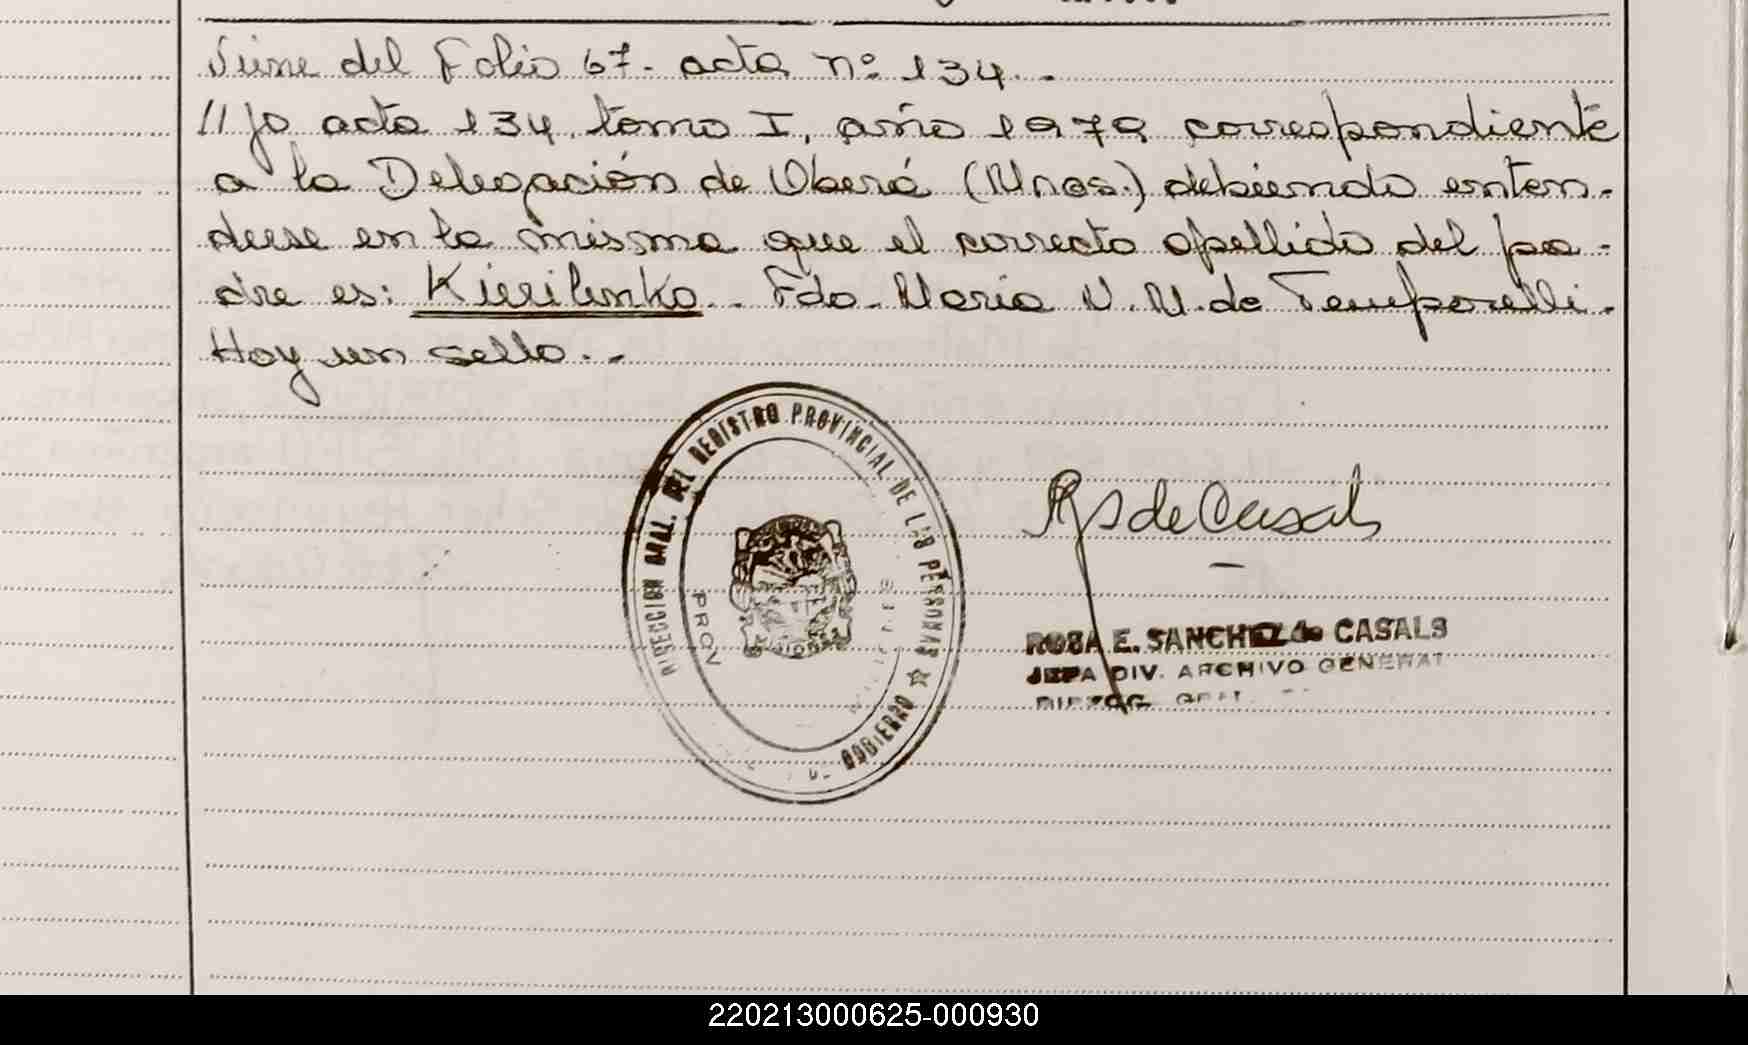 Viene del Folio 67. acta nº 134.-
//jo acta 134, tomo I, año 1979 correspondiente
a la Delegación de Oberá (Mnes.) debiendo enten-
derse en la misma que el correcto apellido del pa-
dre es: Kirilenko.- Fdo. Maria N. M. de Temporelli.
Hay un sello.-
DIRECCION GRAL. DEL REGISTRO PROVINCIAL DE LAS PERSONAS ☆ GOBIERNO
PROV
de Casals
ROSA E. SANCHEZ de CASALS
JEFA DIV. ARCHIVO GENERAL
220213000625-000930